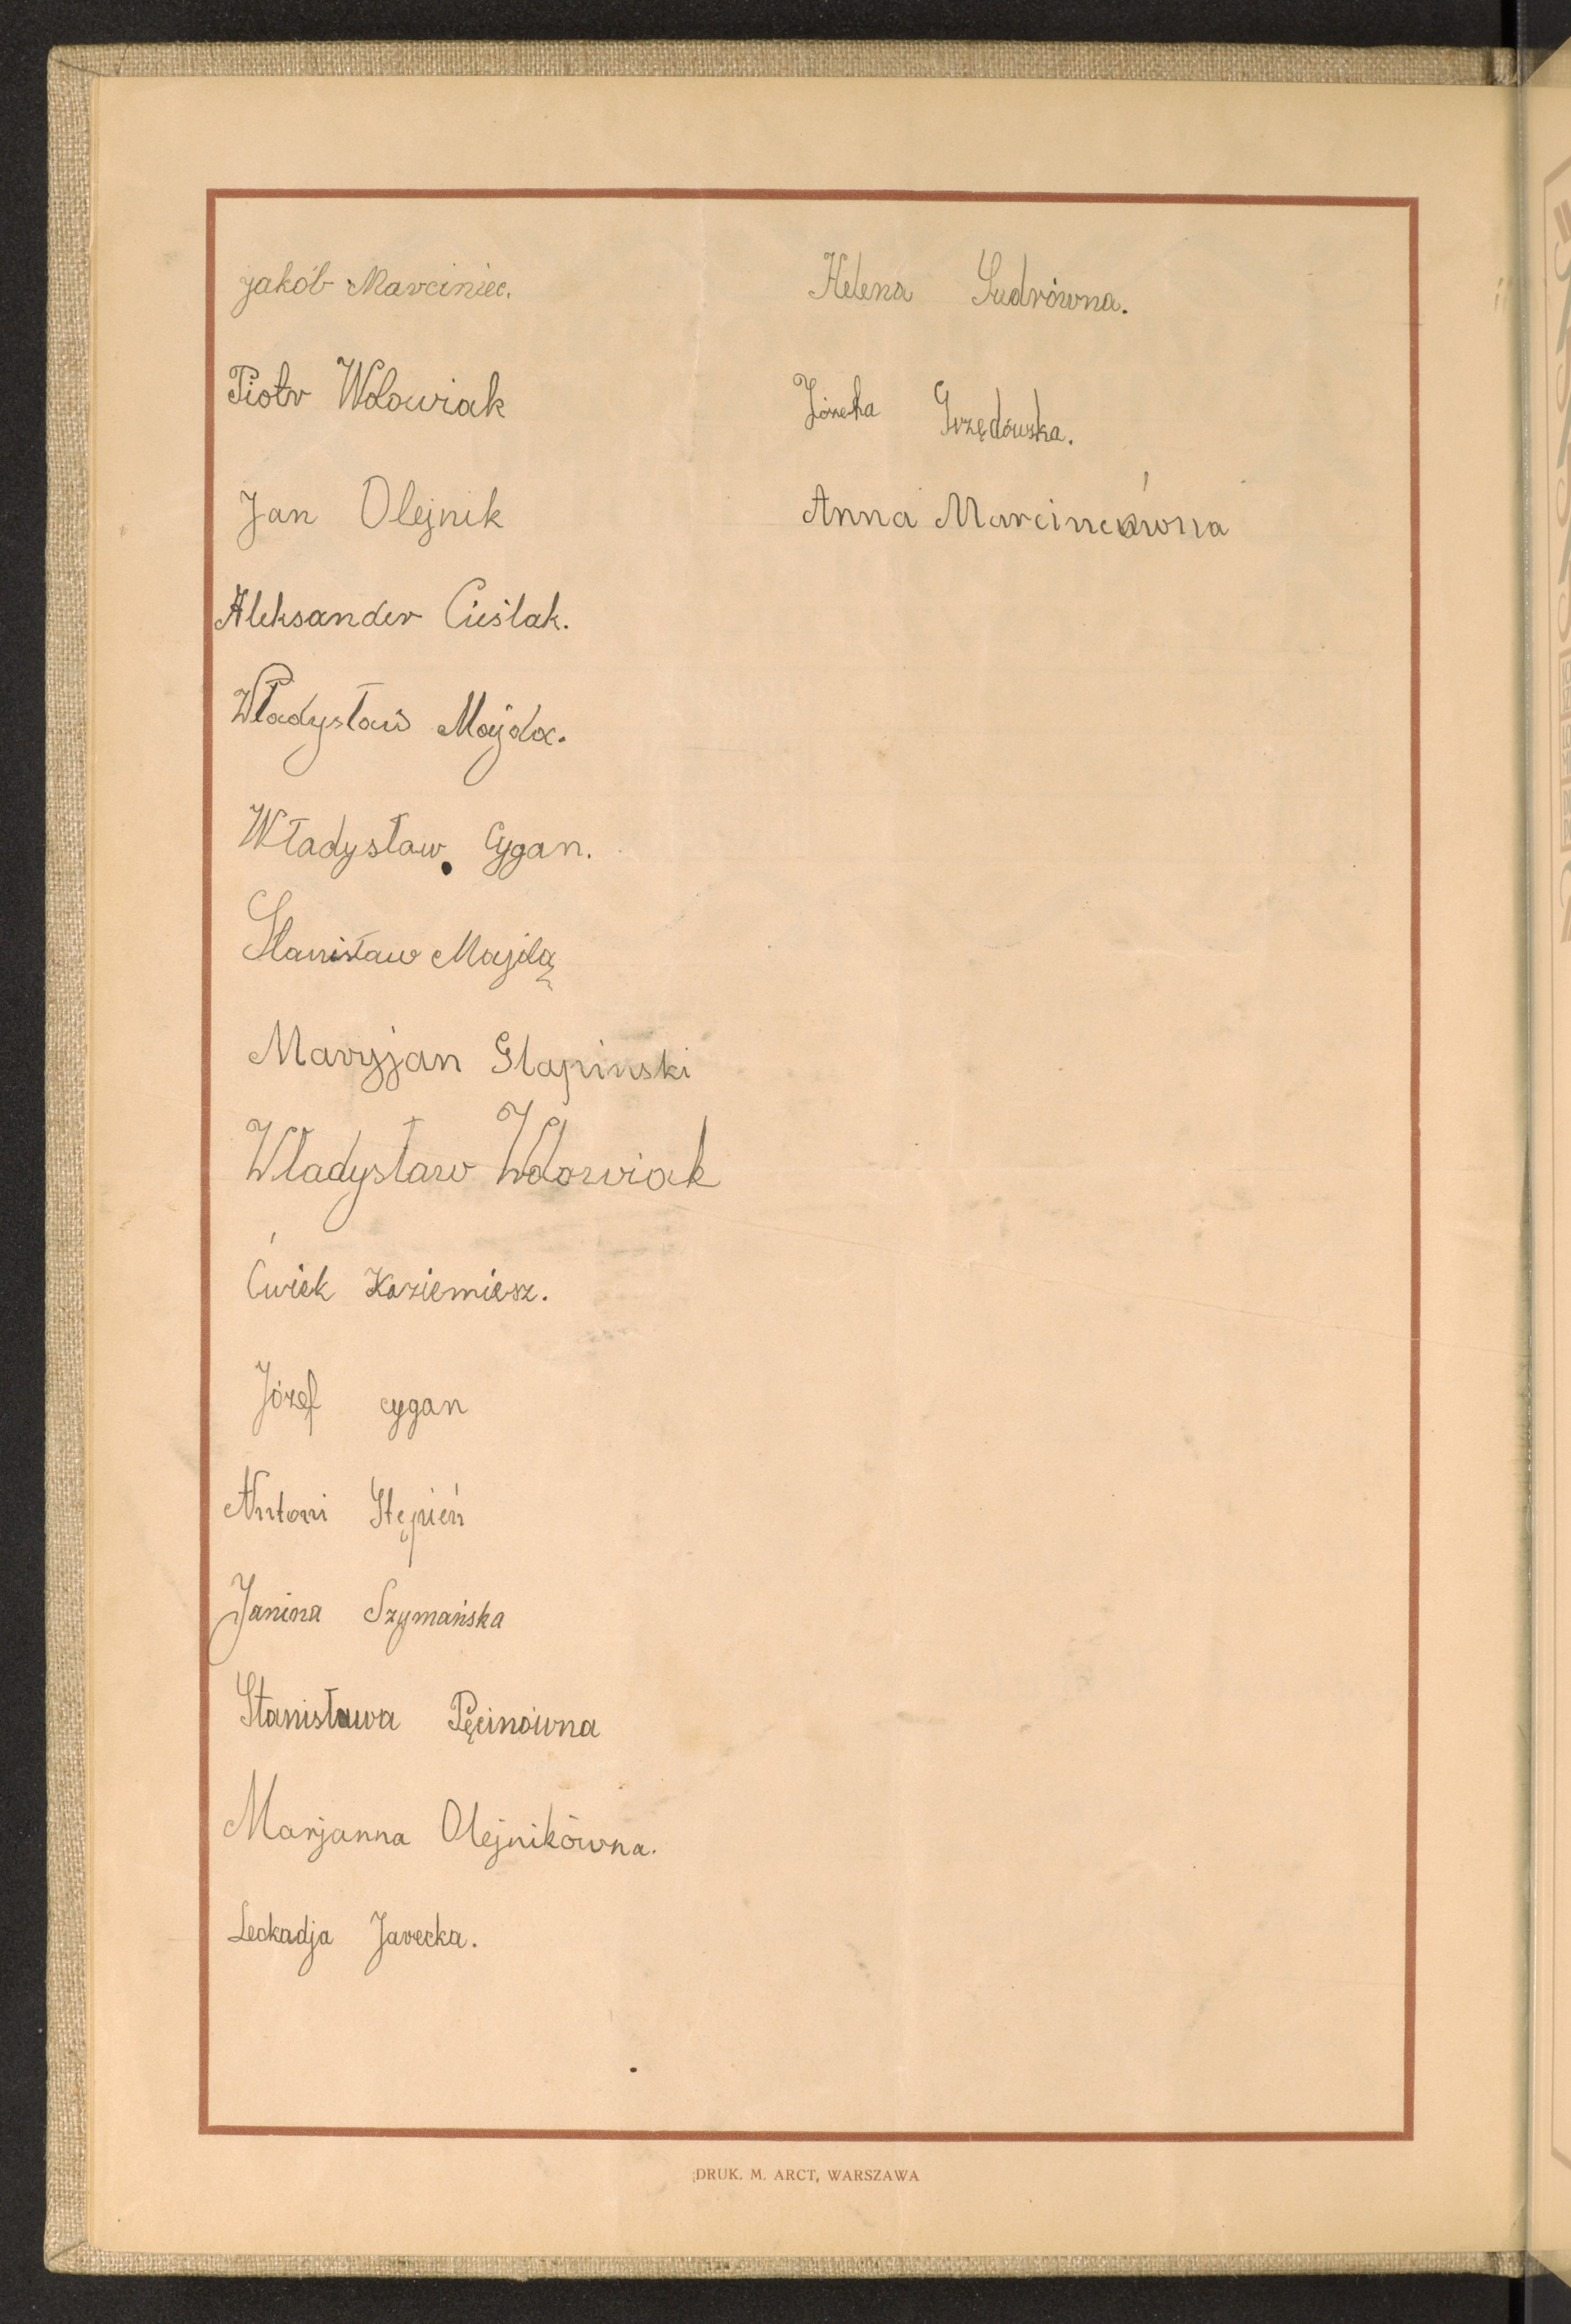 Jakób Marciniec.
Piotr Wołowiak
Jan Olejnik
Aleksander Cieślak.
Władysław Majda.
Władysław Cygan.
Stanisław Majda
Maryjan Glapinski
Władysław Wołowiak
Ćwiek Kaziemiesz.
Józef cygan
Antoni Stępień
Janina Szymańska
Stanisława Pęcinówna
Marjanna Olejnikówna.
Leokadja Jarecka.
Helena
Józefa Grzędowska.
Anna
DRUK. M. ARCT, WARSZAWA